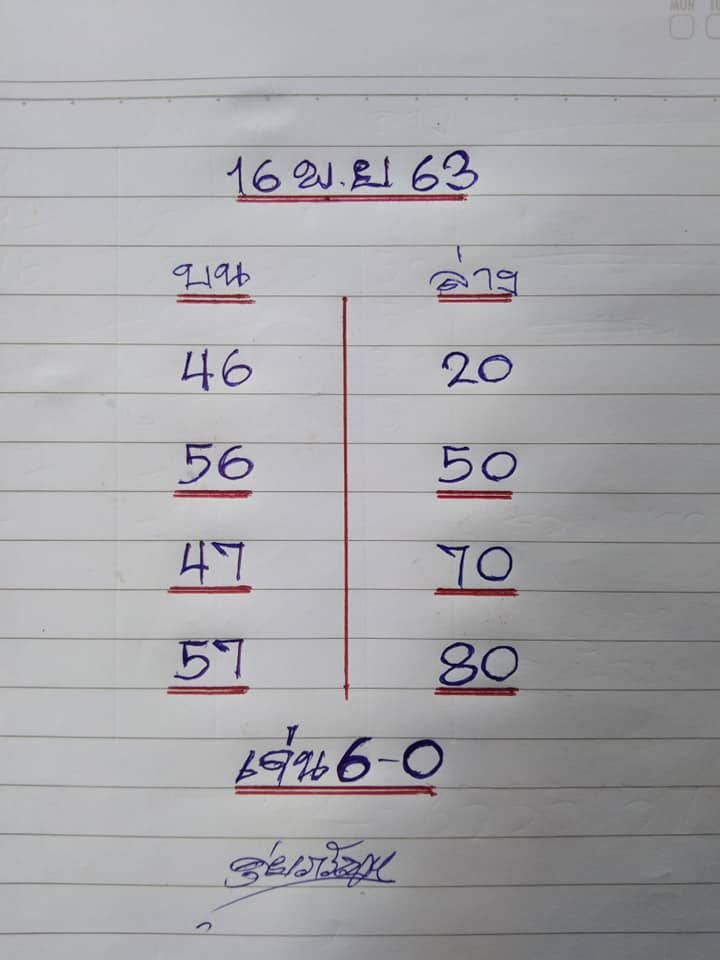 MON
16 พ.ย 63
บน ล่าง
46 20
56 50
47 70
57 80
เด่น 6-0